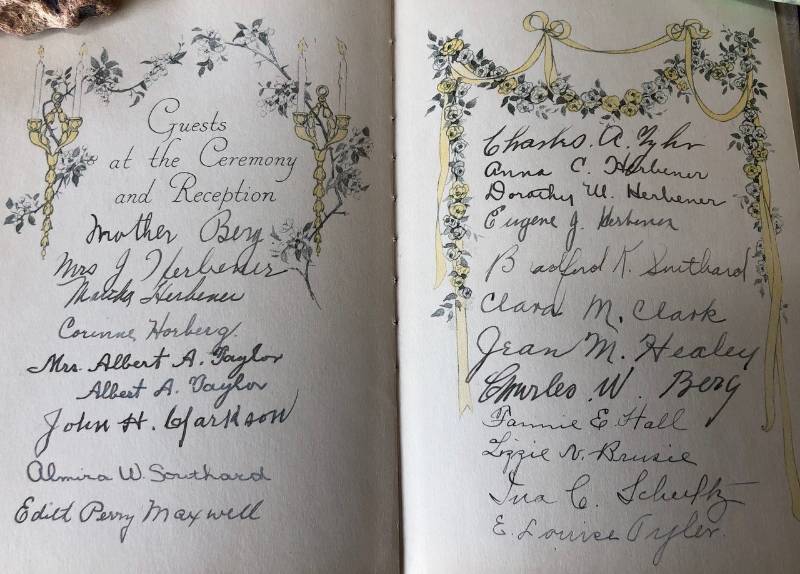 Guests
at the Ceremony
and Reception
Mother Berg
Mrs J Herbener
Martha Herbener
Corinne Horberg
Mrs. Albert A. Taylor
Albert A. Taylor
John H. Clarkson
Almira W. Southard
Edith Perry Maxwell
Charles A. Tyler
Anna C. Herbener
Dorothy W. Herbener
Eugene J. Herbener
Bradford K. Southard
Clara M. Clark
Jean M. Healey
Charles W. Berg
Fannie E. Hall
Lizzie N. Brusie
Ina C. Schultz
E. Louise Tyler.